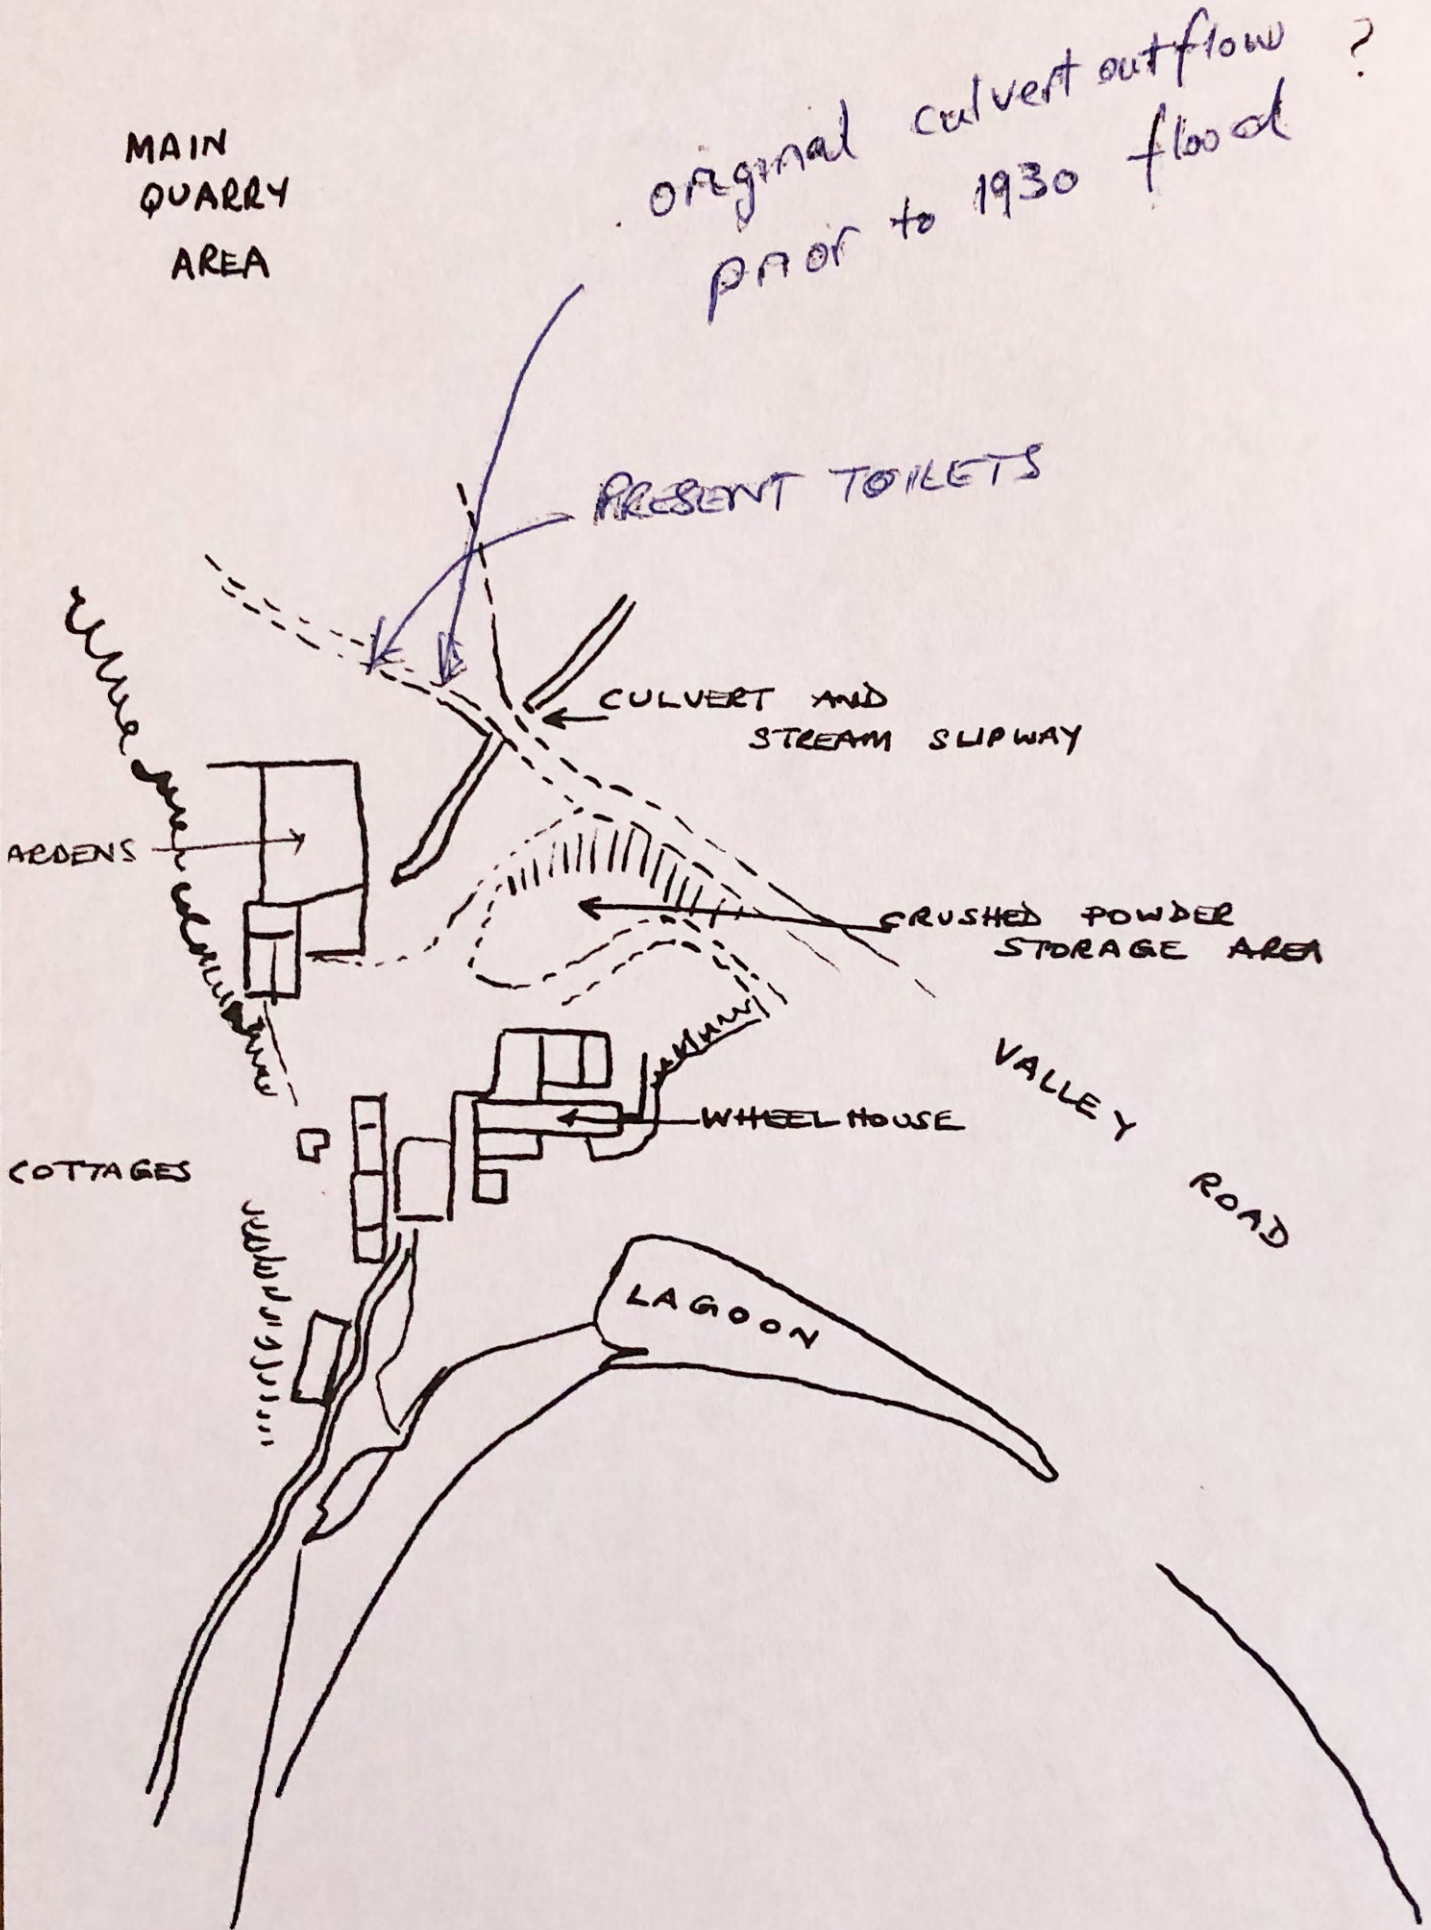 original culvert outflow ?
prior to 1930 flood
MAIN
QUARRY
AREA
PRESENT TOILETS
CULVERT AND
STREAM SLIPWAY
ARDENS
CRUSHED POWDER
STORAGE AREA
VALLEY ROAD
WHEEL HOUSE
COTTAGES
LAGOON